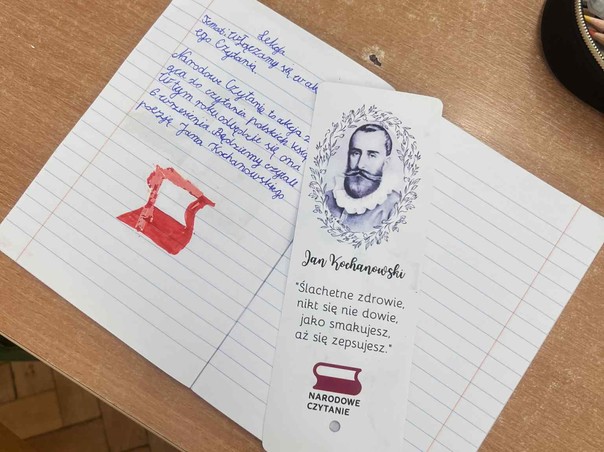 Lekcja
Temat: Włączamy się w ak
ego Czytania.
Narodowe Czytanie to akcja z
ąca do czytania polskich ksią
W tym roku odbędzie się ona
6 września. Będziemy czytali
poezję Jana Kochanowskiego
Jan Kochanowski
"Ślachetne zdrowie,
nikt się nie dowie,
jako smakujesz,
aż się zepsujesz."
NARODOWE
CZYTANIE